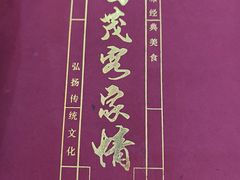 茂客家情
经典美食
弘扬传统文化